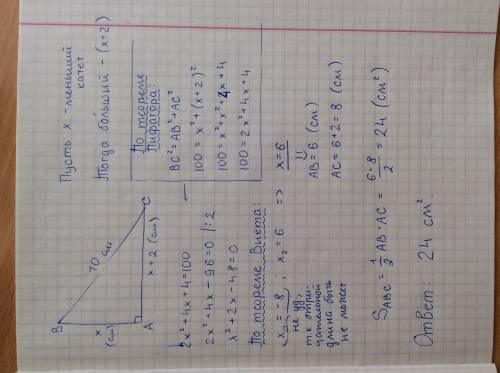 B
x
(см)
10 см
A
x + 2 (см)
C
Пусть x - меньший
катет
Тогда больший - (x+2)
По теореме
Пифагора:
BC² = AB² + AC²
100 = x² + (x+2)²
100 = x² + x² + 4x + 4
100 = 2x² + 4x + 4
2x² + 4x + 4 = 100
2x² + 4x - 96 = 0 |:2
x² + 2x - 48 = 0
По теореме Виета:
x₁ = -8 ; x₂ = 6 => x = 6
не уд,
т к отри-
цательной
длина быть
не может
AB = 6 (см)
AC = 6+2 = 8 (см)
S ABC = 1/2 AB · AC = 6·8/2 = 24 (см²)
Ответ: 24 см².